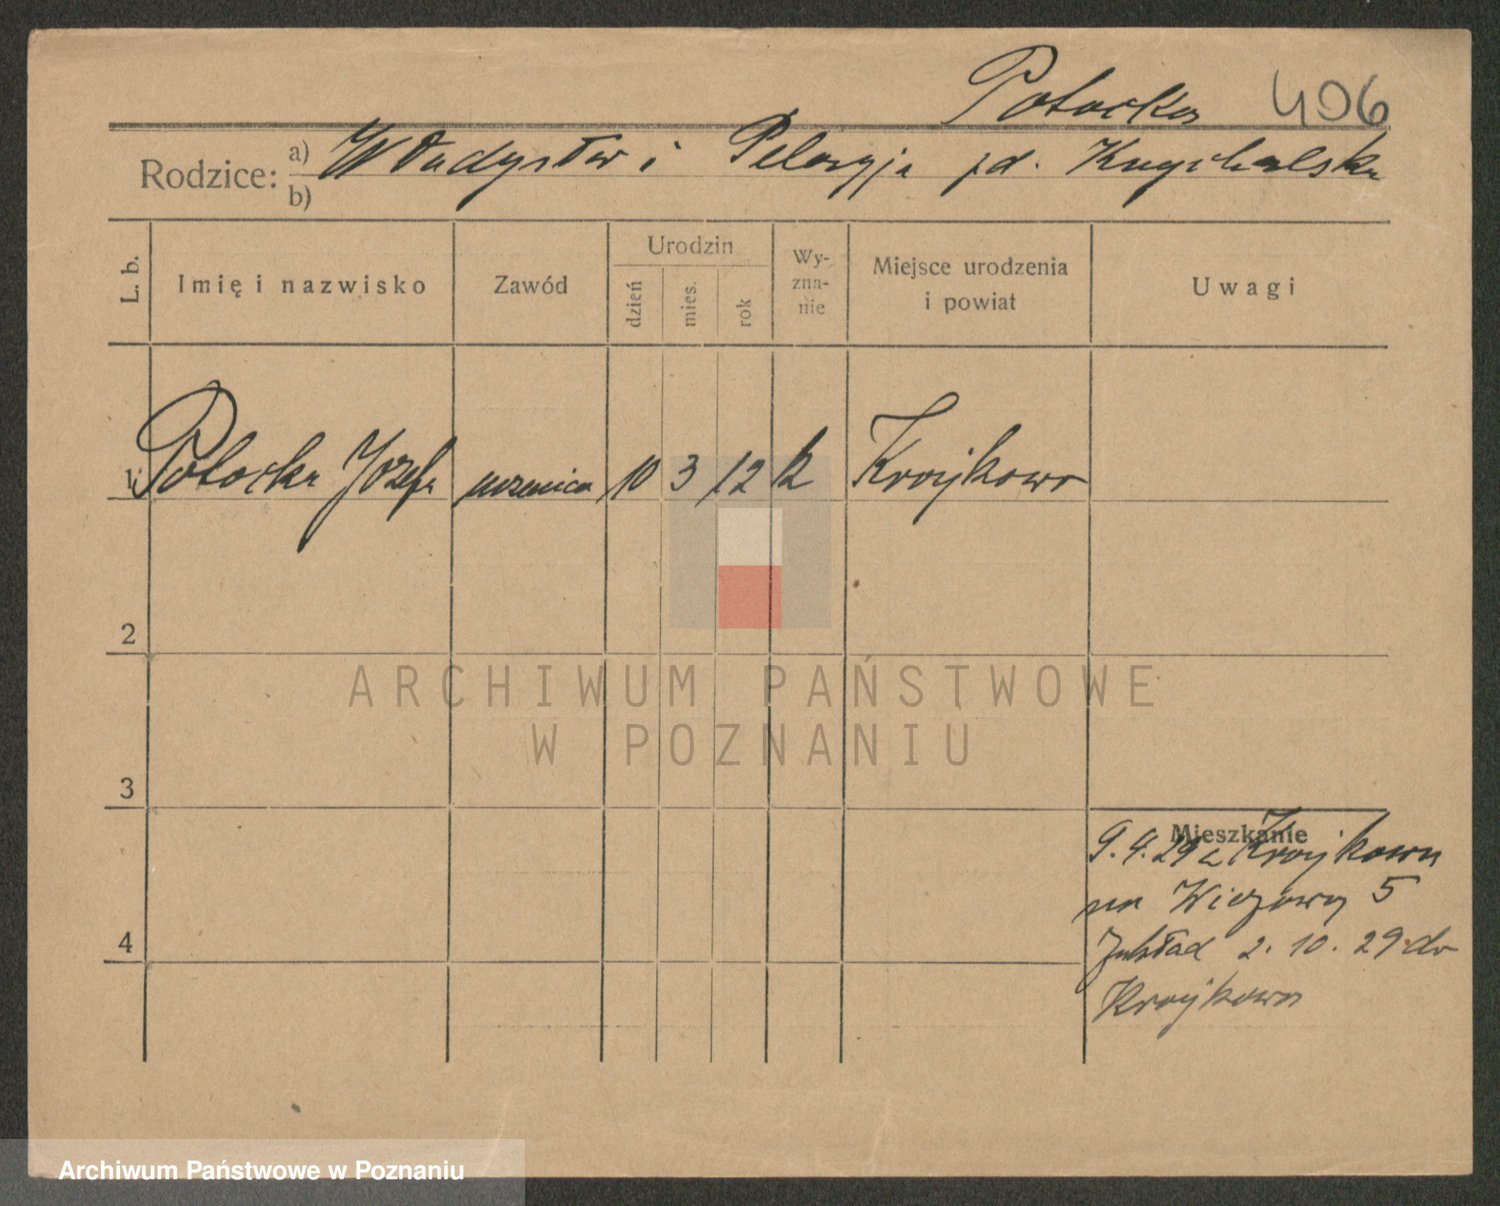 Potocka 406
Rodzice: a) Władysław i Pelagja
b)
L. b. Imię i nazwisko Zawód Urodzin dzień mies. rok Wy-zna-nie Miejsce urodzenia i powiat Uwagi
1 Potocka Józefa uczenica 10 3 12 k Krajkowo
2
3
4
Mieszkanie
9.4.29 z Krajkowa
na Wiezowy 5
Zakład 2.10.29 do
Krajkowa
ARCHIWUM PAŃSTWOWE
W POZNANIU
Archiwum Państwowe w Poznaniu